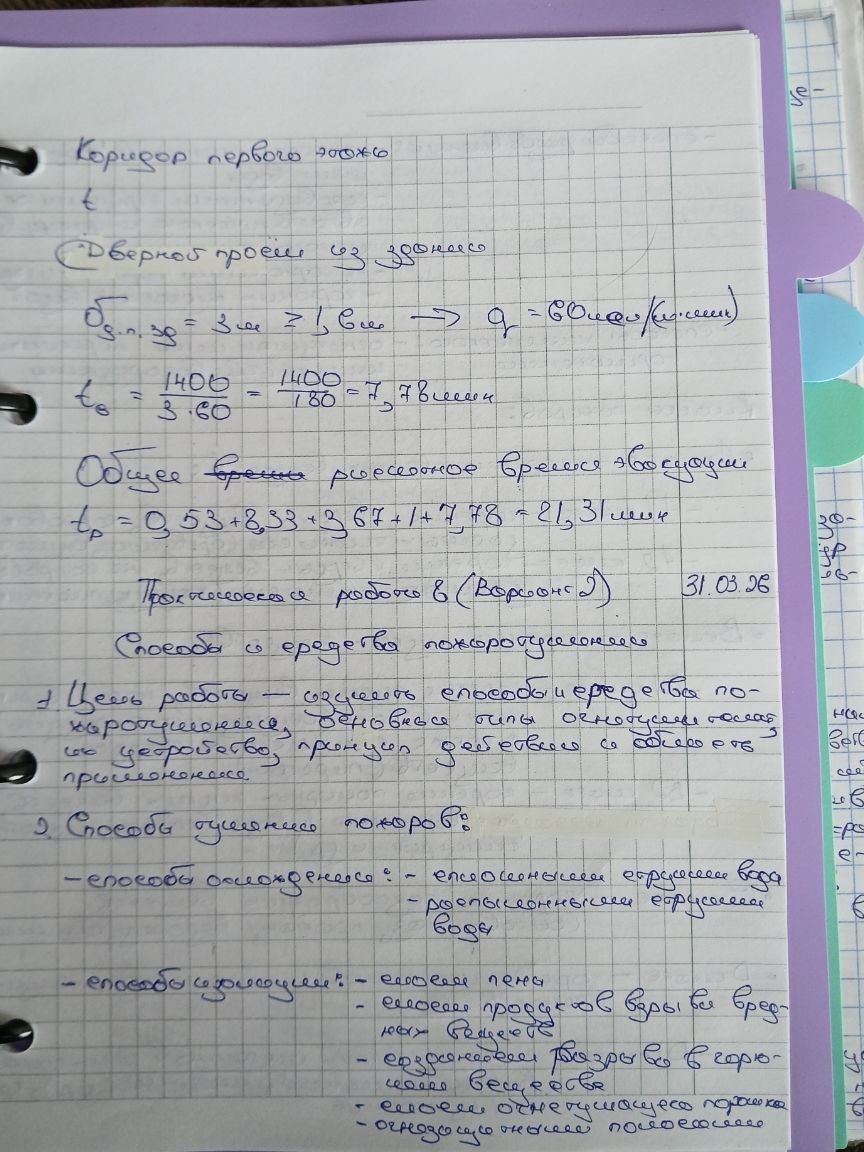 Коридор первого этажа
t
Дверной проём из здания
δд.п.зд = 3м ≥ 1,6м → q = 60чел/(м·мин)
tв = 1400/3·60 = 1400/180 = 7,78 мин
Общее время расчетное время эвакуации
tр = 0,53+8,33+3,67+1+7,78 = 21,31 мин
Практическая работа 6 (Вариант 2) 31.03.26
Способы и средства пожаротушения
1 Цель работы — изучить способы и средства по-
жаротушения, основные типы огнетушителей,
их устройство, принцип действия и область
применения.
2. Способы тушения пожаров:
– способы охлаждения: – сплошными струями вода
– распыленными струями
воды
– способы изоляции: – слоем пены
– слоем продуктов взрыва вред-
ных веществ
– созданием разрыва в горю-
чем веществе
– слоем огнетушащего порошка
– огнезащитными полосами
зе-
зр